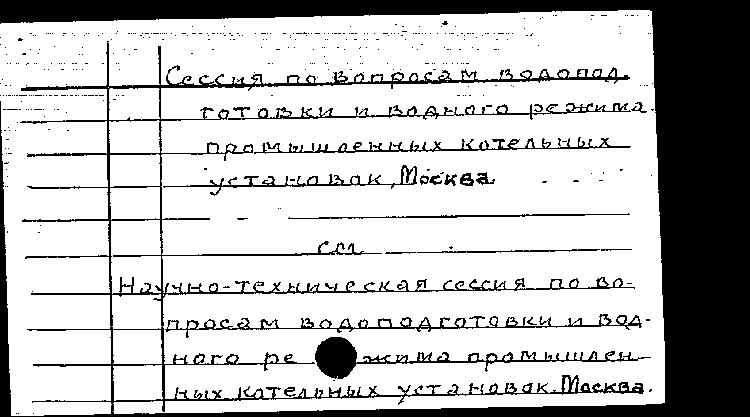 Сессия по вопросам водопод-
готовки и водного режима
промышленных котельных
установок, Москва
см
Научно-техническая сессия по во-
просам водоподготовки и вод-
ного режима промышлен-
ных котельных установок. Москва.